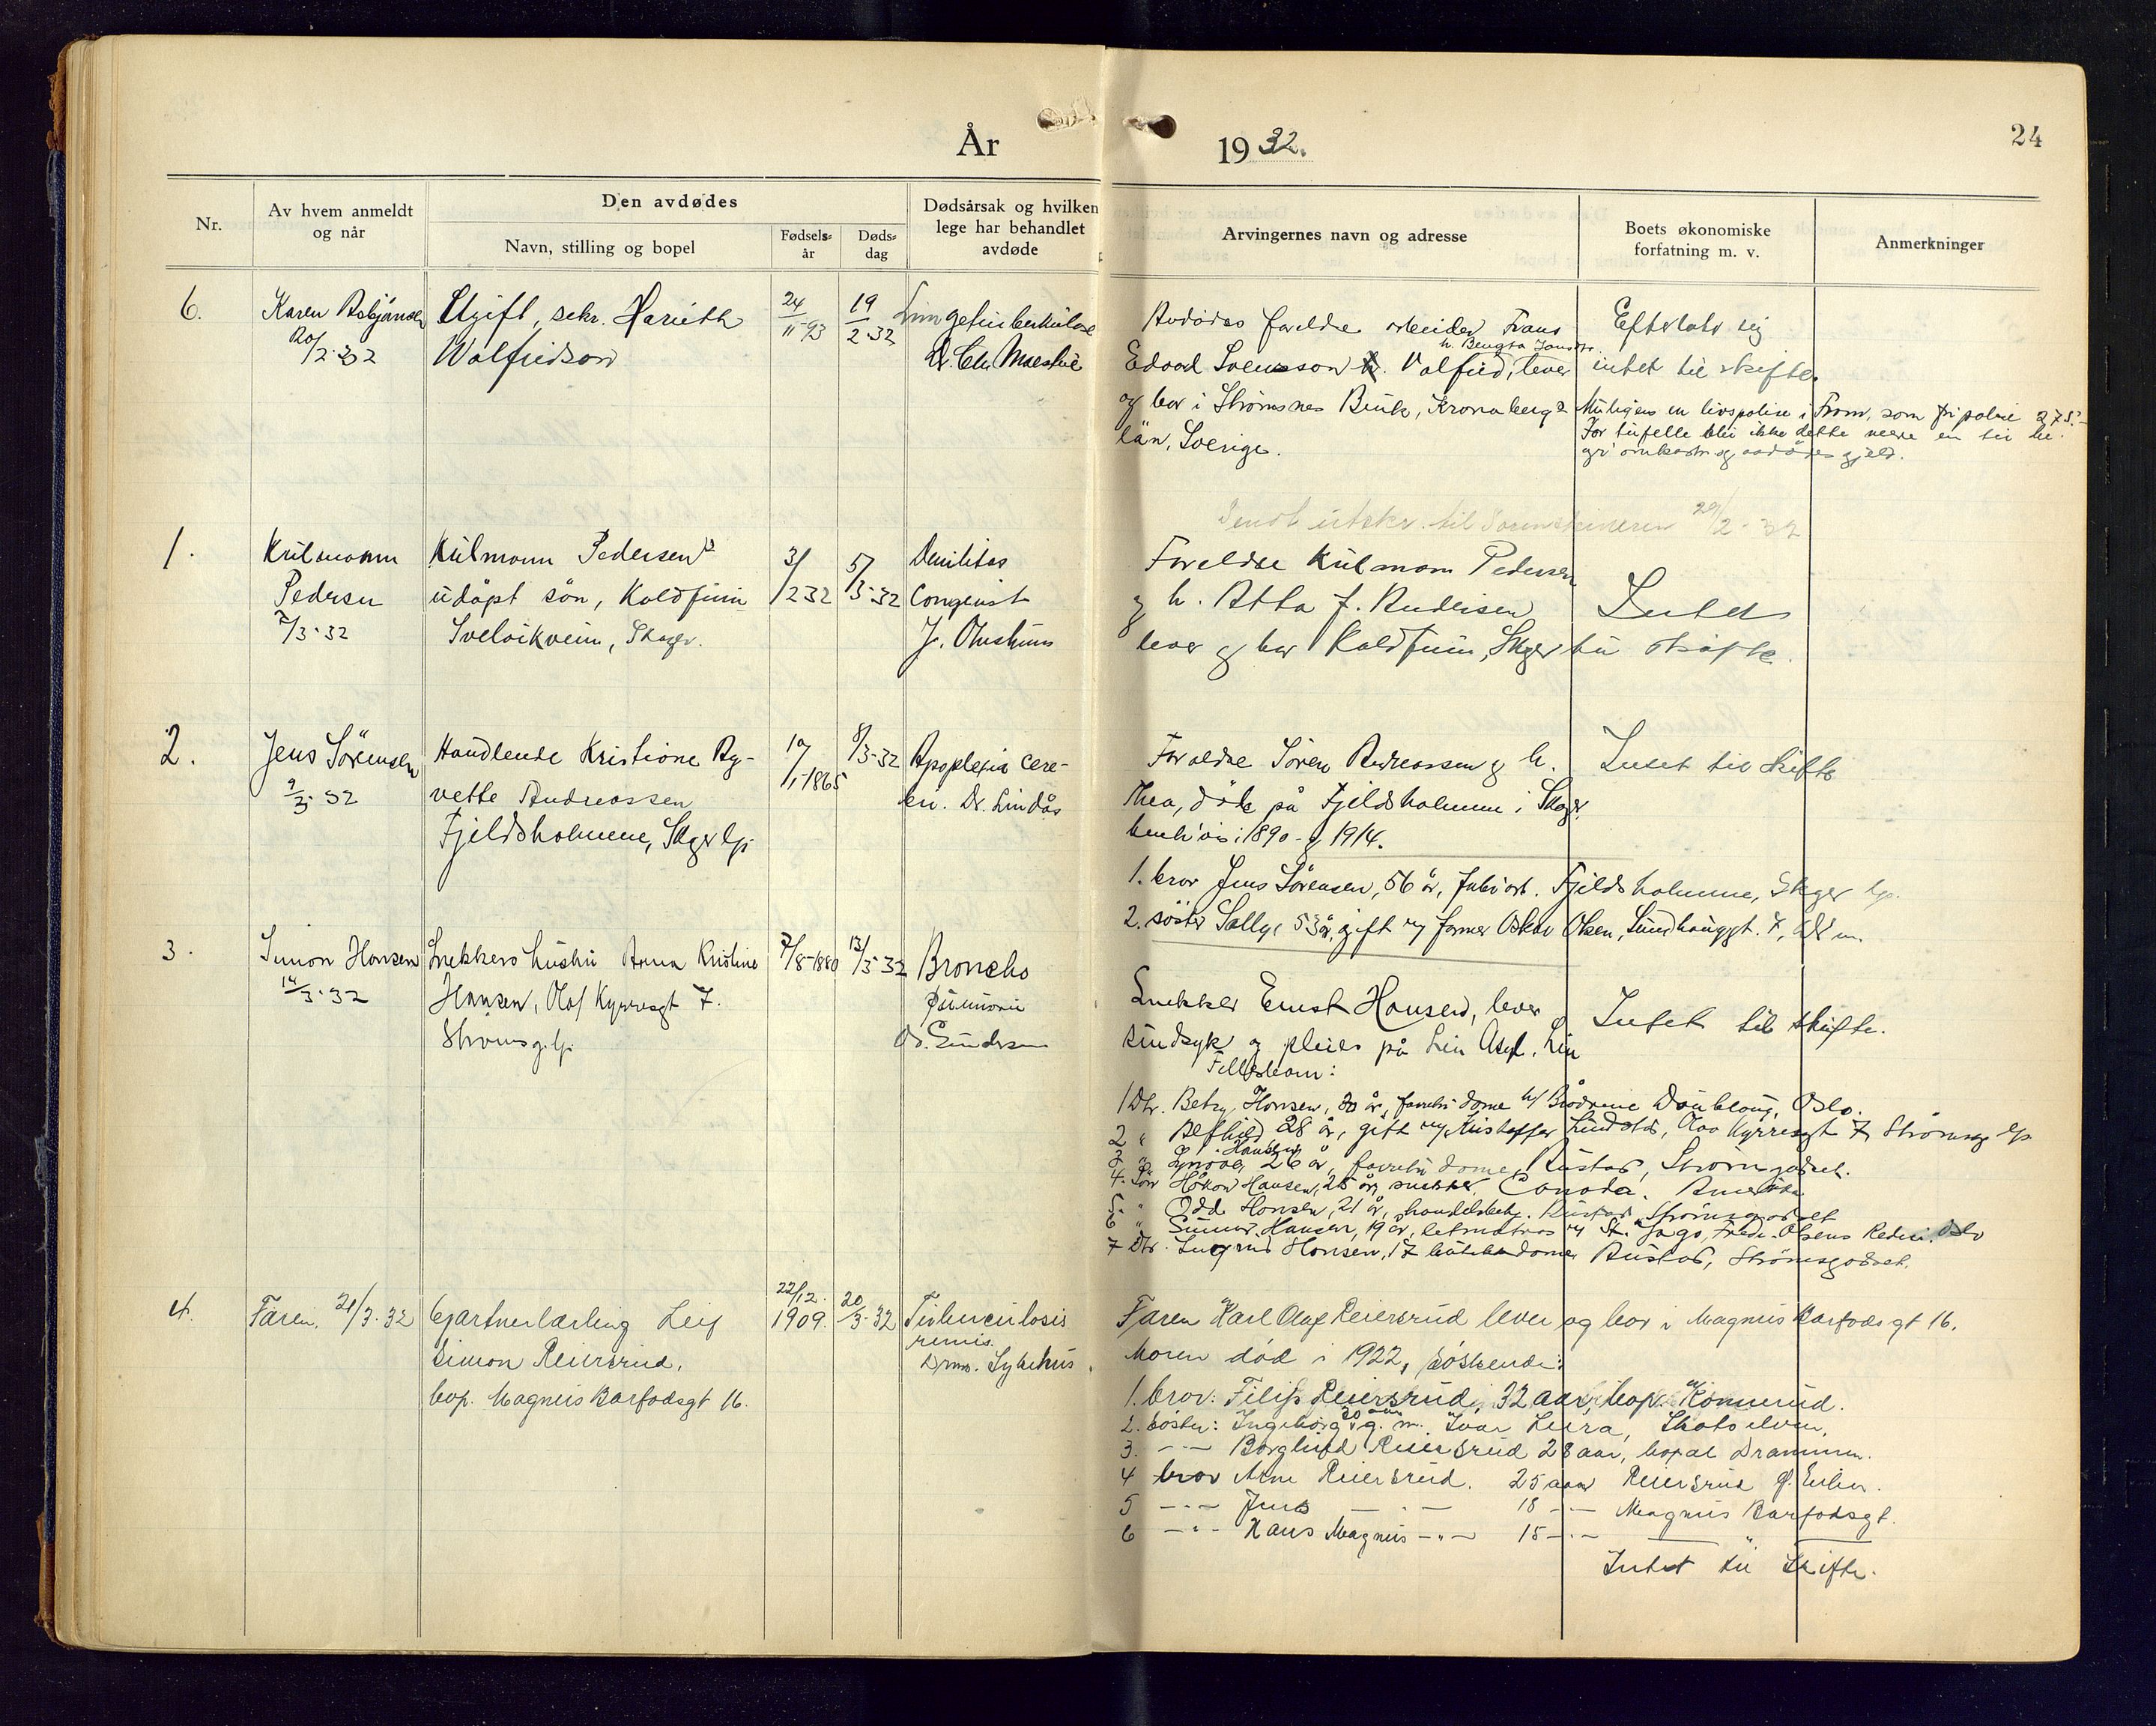 År 1932.
24
Nr.
Av hvem anmeldt og når
Den avdødes
Navn, stilling og bopel
Fødsels-år
Døds-dag
Dødsårsak og hvilken lege har behandlet avdøde
Arvingernes navn og adresse
Boets økonomiske forfatning m. v.
Anmerkninger
6.
Karen Asbjörnsen
20/2-32
Ugift, sekr. Harieth
Wolfridson
24/11-93
19/2-32
Lungetuberkulose
Dr. Chr.
Avdødes foreldre arbeider Frans
h. Bengta
Edvard Svensson Valfrid, lever
og bor i Strömsnes Bruk, Kronobergs
län, Sverige.
Efterlot sig
intet til skifte.
Muligens en livspolise i Fram, som fripolise 275.-
For tilfelle blir ikke dette mere en til be-
gr. omkostn. og avdødes gjeld.
Sendt utskr. til Sorenskriveren 29/2-32
1.
Kulmann
Pedersen
7/3-32
Kulmann Pedersens
udöpt sön, Koldfunn
Svelvikveien, Skoger.
3/12 32
5/3-32
Debilitas
Congenist
J.
Foreldre Kulmann Pedersen
og h. Asta f. Andersen
lever og bor Koldfunn, Skger
Intet
til skifte.
2.
Jens Sörensen
9/3-32
Handlende Kristiane Ag-
vette Andreassen
Fjeldsholmene, Skger lp.
19/1-1865
8/3-32
Apoplexia cere-
bri. Dr. Lindås
Foreldre Sören Andreassen og h.
Thea, döde på Fjeldsholmene i Skoger
henh.vis i 1890 - og 1914.
Intet til skifte
1. bror Jens Sörensen, 56 år, fabr.arb. Fjeldsholmene, Skger lp.
2. söster Sally, 53 år, gift m/ former Oskar Olsen, Lundhauggt. 7,
3.
Simon Hansen
14/3-32
Snekkers hustru Anna Kristine
Hansen, Olaf Kyrresgt 7.
Strömsg. lp.
7/8-1880
13/3-32
Broncho
pneumoni
Dr. Gundersen
Snekker Ernst Hansen, lever
sindsyk og pleies på Lier Asyl. Lier
Intet til skifte.
Fellesbarn:
1 Dtr. Betzy Hansen, 30 år, forretn.dame h/ Brödrene Oslo.
2 " Alfhild 28 år, gift m/ Kristoffer Olav Kyrresgt 7, Strömsg lp
3 " Synnöve Hansen 26 år, forretn dame, Rustad, Strömsgodset.
4. Sön Håkon Hansen, 25 år, snekker, Canada. Amerika
5. " Odd Hansen, 21 år, handelsbetj. Rustad Strömsgodset
6 " Gunnar Hansen, 19 år, letmatros m/ St. Jago, Fred. Olsens Rederi. Oslo
7 Dtr. Ingrid Hansen, 17 butikkdame, Rustad, Strömsgodset.
4.
Faren, 21/3.32
Gjartnerlærling Leif
Simon Reiersrud,
bop. Magnus Barfodsgt 16.
22/12. 1909.
20/3-32
Tuberculosis
renis.
Drm. Sykehus.
Faren Karl Olaf Reiersrud lever og bor i Magnus Barfods gt 16.
Moren död i 1922, söskende:
1. bror: Filip Reiersrud, 32 aar, bop. Konnerud.
2. söster: Ingeborg 30 aar g. m. Ivar Leira, Skotselven,
3. -"- Borghild Reiersrud 28 aar, bopæl Drammen.
4 bror Arne Reiersrud. 25 aar Reiersrud Ø. Eiker.
5 -"- Jens -"- 18 -"- Magnus Barfodsgt.
6 -"- Hans Magnus -"- 15 -"-
Intet til skifte.